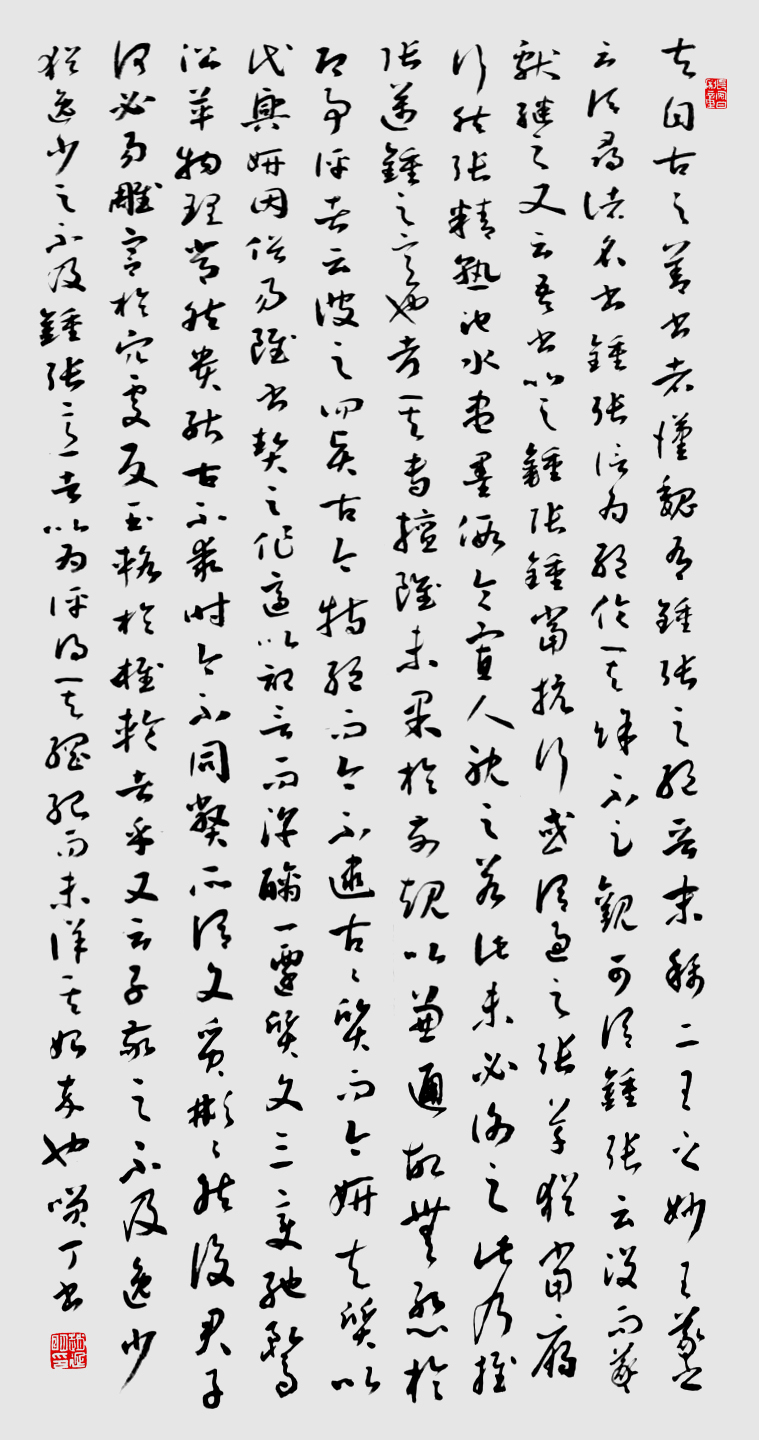 夫自古之善書者漢魏有鍾張之絕晉末稱二王之妙王羲之
云頃尋諸名書鍾張信為絕倫其餘不足觀可謂鍾張云沒而羲
獻繼之又云吾書比之鍾張鍾當抗行或謂過之張草猶當雁
行然張精熟池水盡墨假令寡人耽之若此未必謝之此乃推
張邁鍾之意也考其專擅雖未果於前規以兼通故無慚於
即事評者云彼之四賢古今特絕而今不逮古々質而今妍夫質以
代興妍因俗易雖書契之作適以記言而淳醨一遷質文三變馳鶩
沿革物理常然貴能古不乖時今不同弊所謂文質彬々然後君子
何必易雕宮於穴處反玉輅於椎輪者乎又云子敬之不及逸少
猶逸少之不及鍾張意者以為評得其綱紀而未詳其始卒也丁書